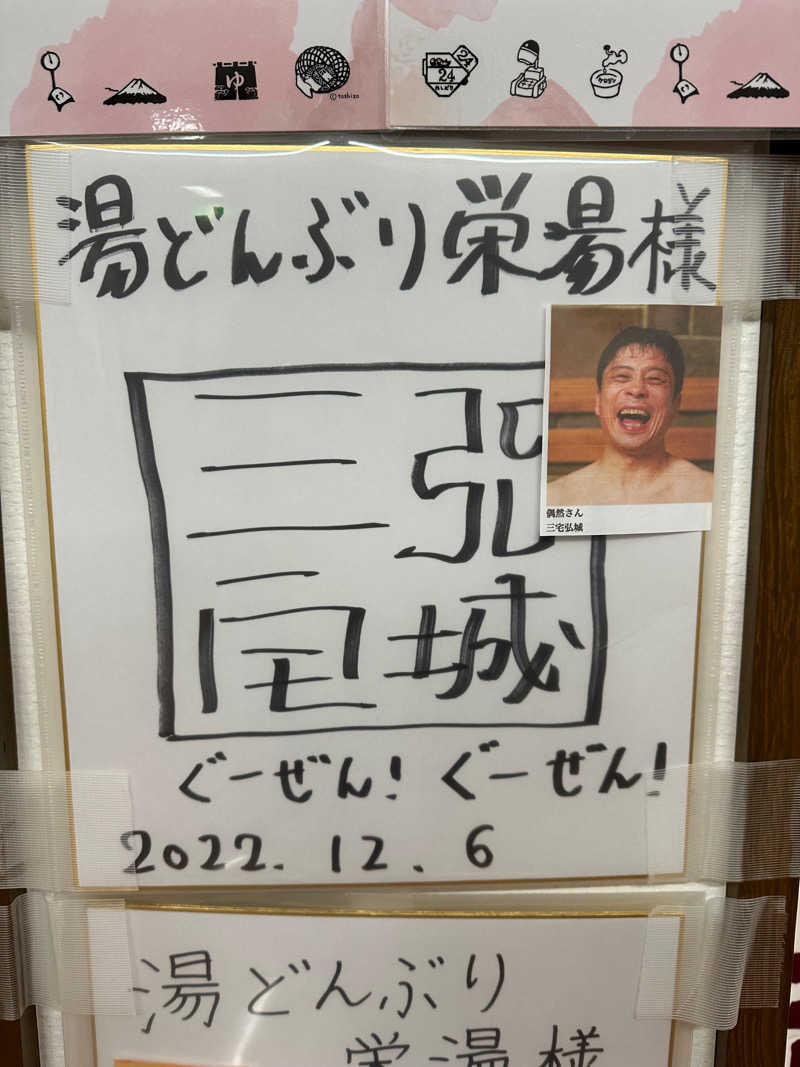 ゆ
©toshizo
24
湯どんぶり栄湯様
偶然さん
三宅弘城
三宅
弘城
ぐーぜん! ぐーぜん!
2022.12.6
湯どんぶり
栄湯様